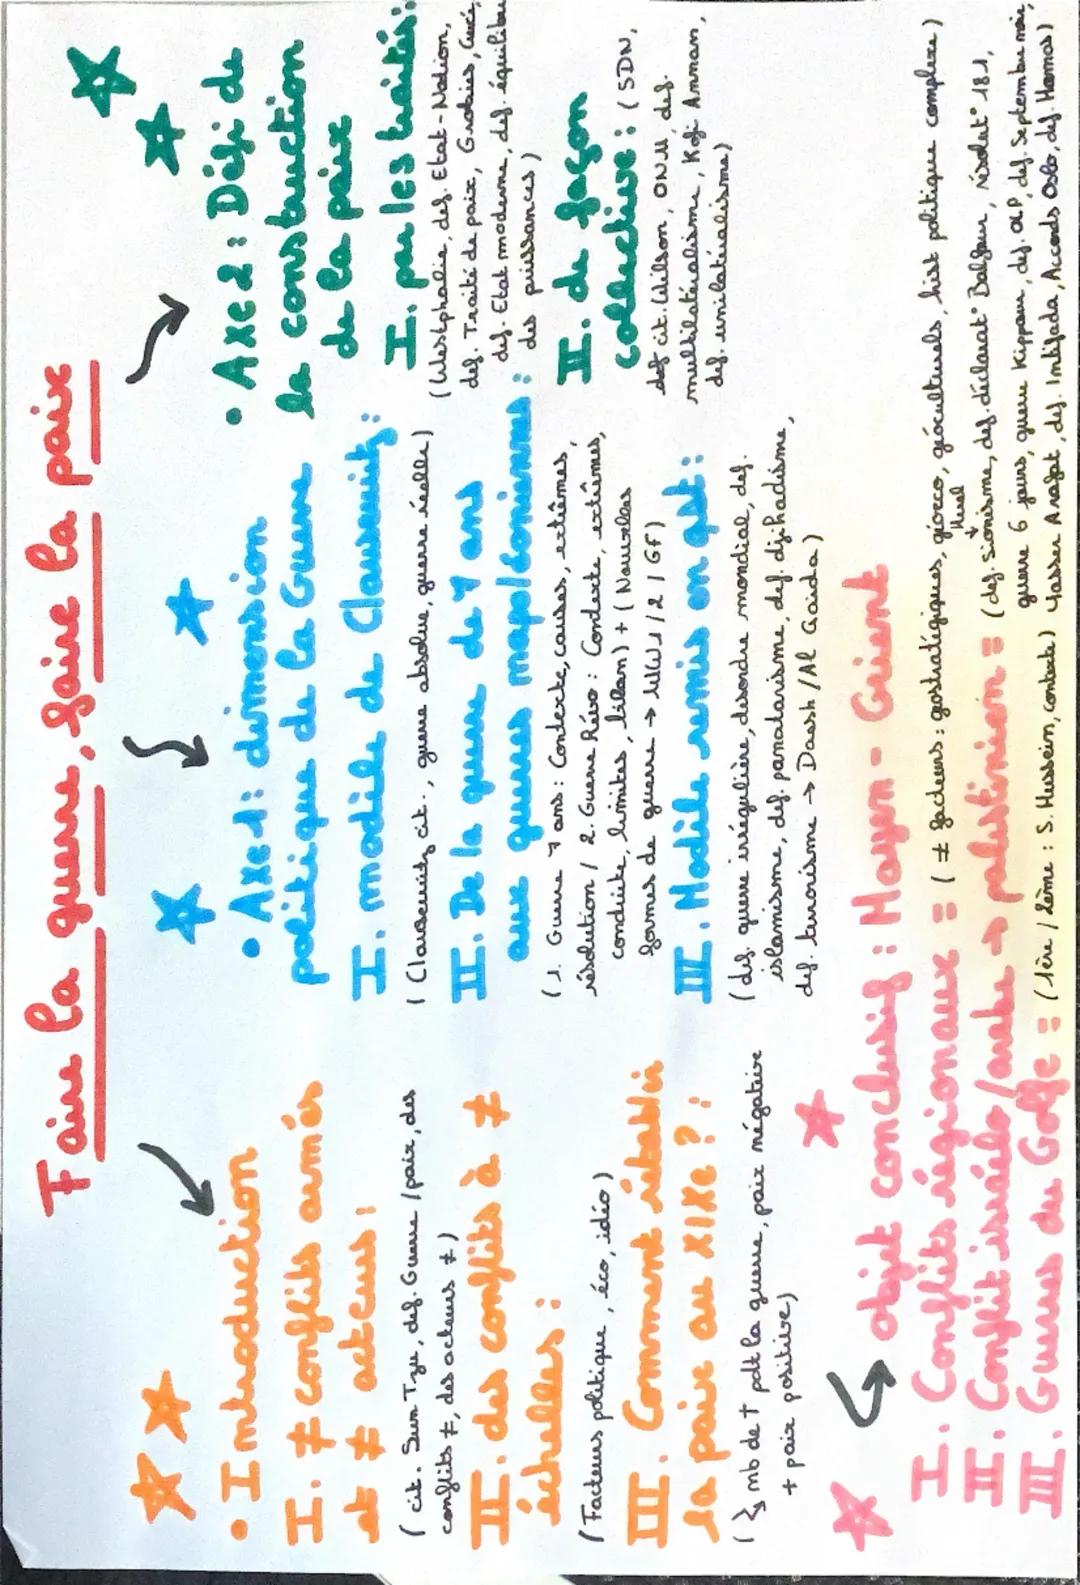 Faire la guerre, faire la paix
• Introduction
I. ≠ conflits armés
et ≠ acteurs :
( cit. Sun Tzu, def. Guerre / paix, des
conflits ≠, des acteurs ≠ )
II. des conflits à ≠
échelles :
( Facteurs politique, éco, idéo )
III. Comment rétablir
la paix au XIXe ? :
( ↳ nb de † pdt la guerre, paix négative
+ paix positive )
• Axe 1 : dimension
politique de la Guerre
I. modèle de Clausewitz :
( Clausewitz cit., guerre absolue, guerre réelle )
II. De la guerre de 7 ans
aux guerres napoléoniennes :
( 1. Guerre 7 ans : Contexte, causes, extrêmes,
résolution / 2. Guerre Révo : Contexte, extrêmes,
conduite, limites, bilan ) + ( Nouvelles
formes de guerre → WW1 / 2 / GF )
III. Modèle remis en qst :
( def. guerre irrégulière, désordre mondial, def.
islamisme, def. panarabisme, def. djihadisme,
def. terrorisme → Daesh / Al Qaida )
• Axe 2 : Défi de
la construction
de la paix
I. par les traités :
( Westphalie, def. Etat-Nation,
def. Traité de paix, Grotius,
def. Etat moderne, def. équilibre
des puissances )
II. de façon
collective : ( SDN,
def cit. Wilson, ONU, def.
multilatéralisme, Kofi Annan,
def. unilatéralisme )
↳ objet conclusif : Moyen-Orient
I. Conflits régionaux = ( ≠ facteurs : gostratégiques, géoéco, géoculturels, hist politique complexe )
II. Conflit israélo/arabe → palestinien = ( def. Sionisme, def. déclarat° Balfour, résolut° 181,
guerre 6 jours, guerre Kippour, def. OLP, def. Septembre noir,
III. Guerres du Golfe = ( 1ère / 2ème : S. Hussein, contexte ) Yasser Arafat, def. Intifada, Accords Oslo, def. Hamas )